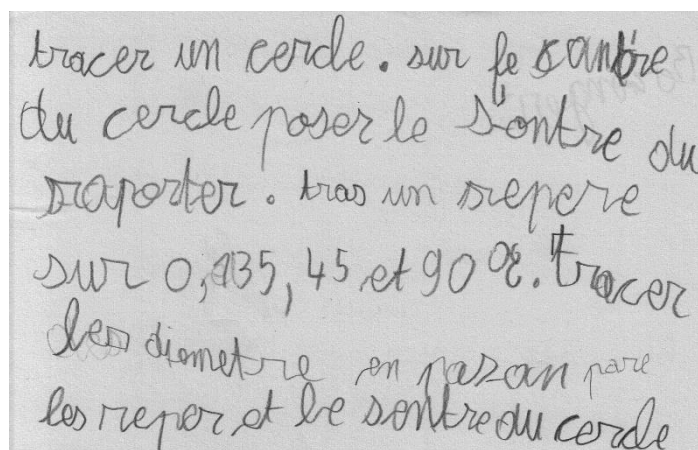 tracer un cercle. sur le santre
du cercle poser le sontre du
raporter. tras un repere
sur 0, 135, 45 et 90°. tracer
les diametre en pasan pare
les reper et le sentre du cercle